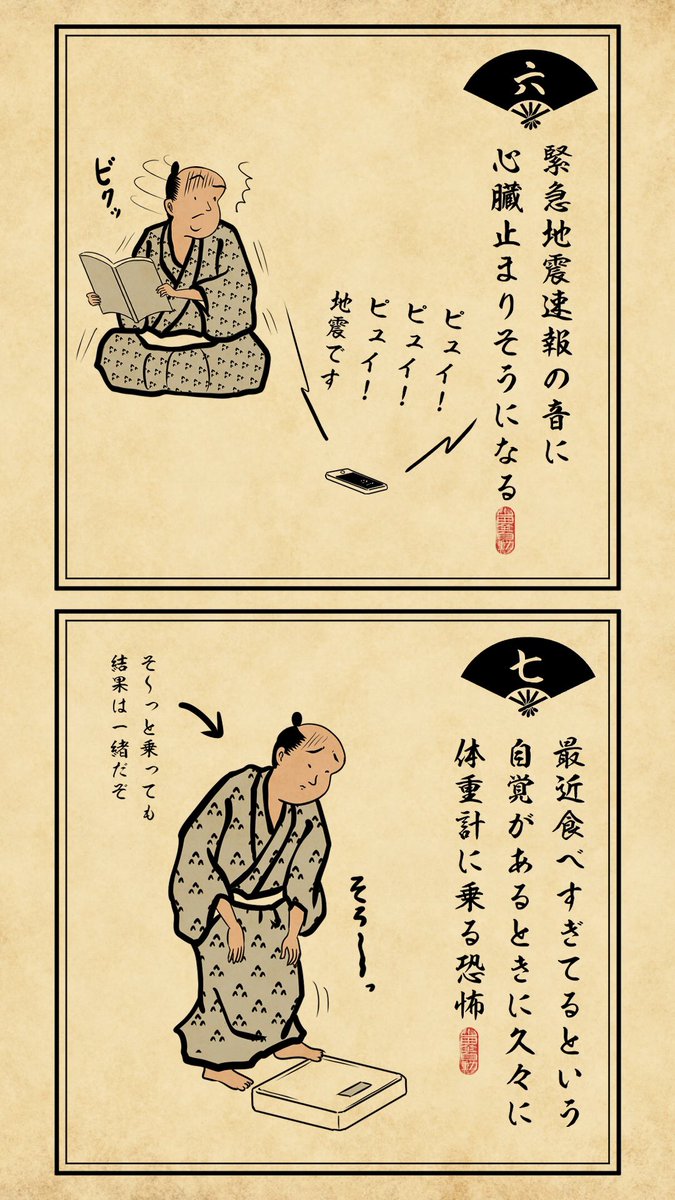 六
緊急地震速報の音に
心臓止まりそうになる
ピュイ！
ピュイ！
ピュイ！
地震です
ビクッ
七
最近食べすぎてるという
自覚があるときに久々に
体重計に乗る恐怖
そろ〜〜っ
そ〜っと乗っても
結果は一緒だぞ